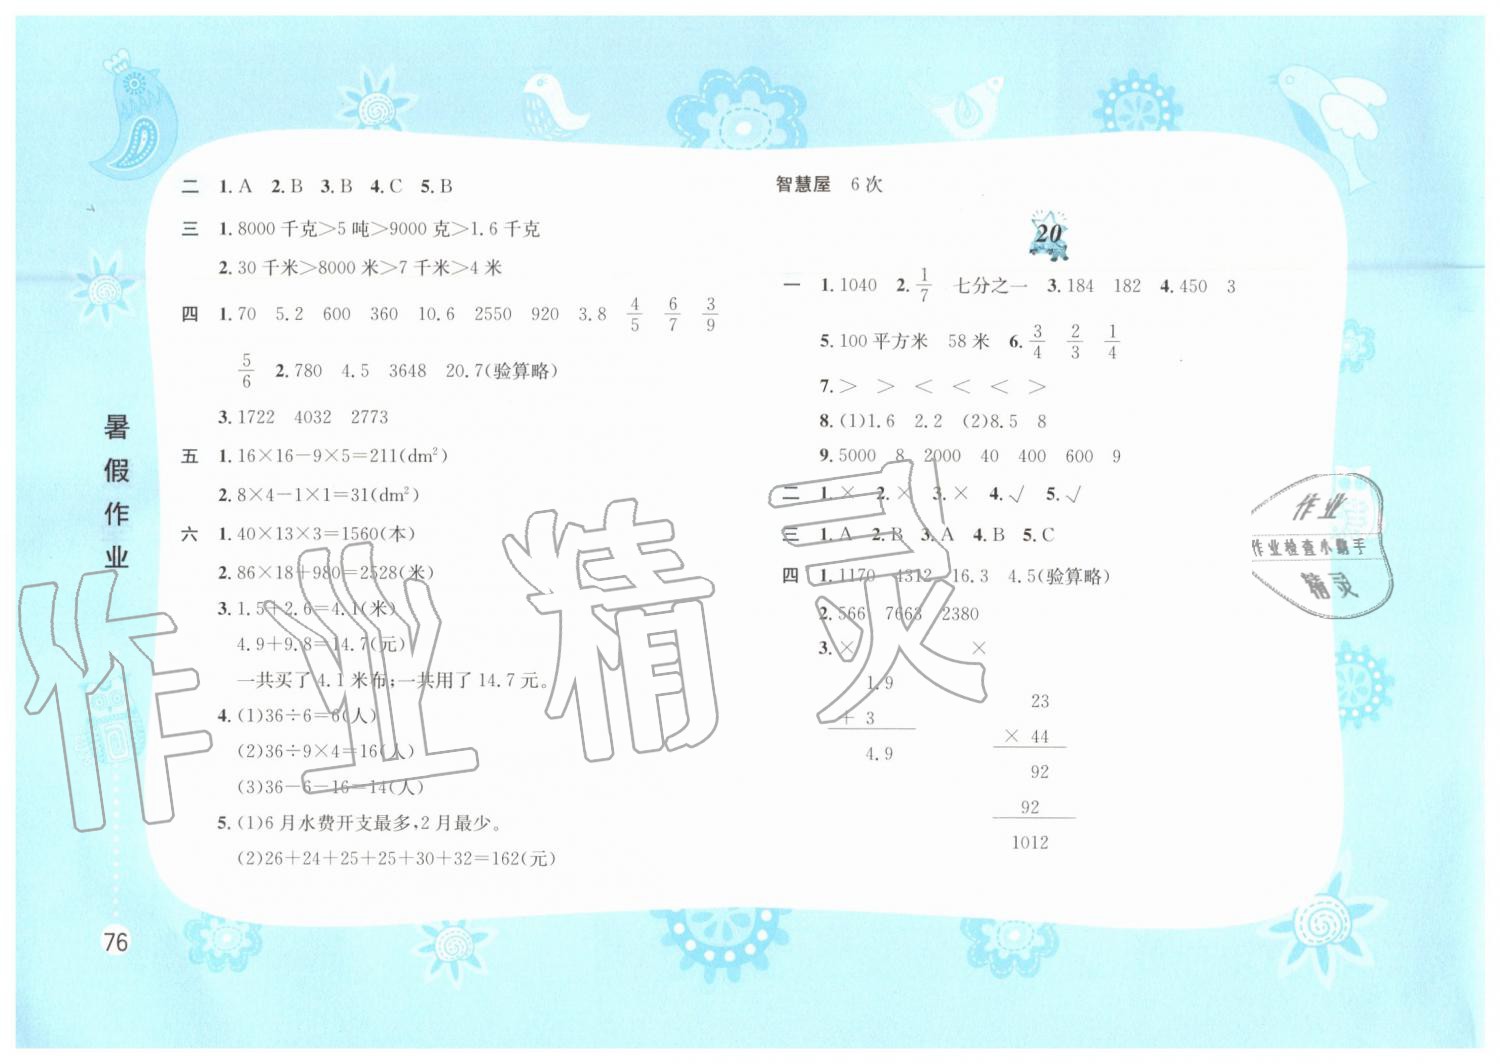 二 1. A 2. B 3. B 4. C 5. B
三 1. 8000 千克>5 吨>9000 克>1.6 千克
2. 30 千米>8000 米>7 千米>4 米
四 1. 70 5.2 600 360 10.6 2550 920 3.8 4/5 6/7 3/9
5/6 2. 780 4.5 3648 20.7(验算略)
3. 1722 4032 2773
五 1. 16×16-9×5=211(dm²)
2. 8×4-1×1=31(dm²)
六 1. 40×13×3=1560(本)
2. 86×18+980=2528(米)
3. 1.5+2.6=4.1(米)
4.9+9.8=14.7(元)
一共买了 4.1 米布;一共用了 14.7 元。
4. (1)36÷6=6(人)
(2)36÷9×4=16(人)
(3)36-6-16=14(人)
5. (1)6 月水费开支最多,2 月最少。
(2)26+24+25+25+30+32=162(元)
智慧屋 6 次
20
一 1. 1040 2. 1/7 七分之一 3. 184 182 4. 450 3
5. 100 平方米 58 米 6. 3/4 2/3 1/4
7. > > < < < >
8. (1)1.6 2.2 (2)8.5 8
9. 5000 8 2000 40 400 600 9
二 1. × 2. × 3. × 4. √ 5. √
三 1. A 2. B 3. A 4. B 5. C
四 1. 1170 4312 16.3 4.5(验算略)
2. 566 7663 2380
3. × ×
1.9
+ 3
4.9
23
× 44
92
92
1012
暑假作业
76
作业精灵
作业
作业检查小助手
精灵